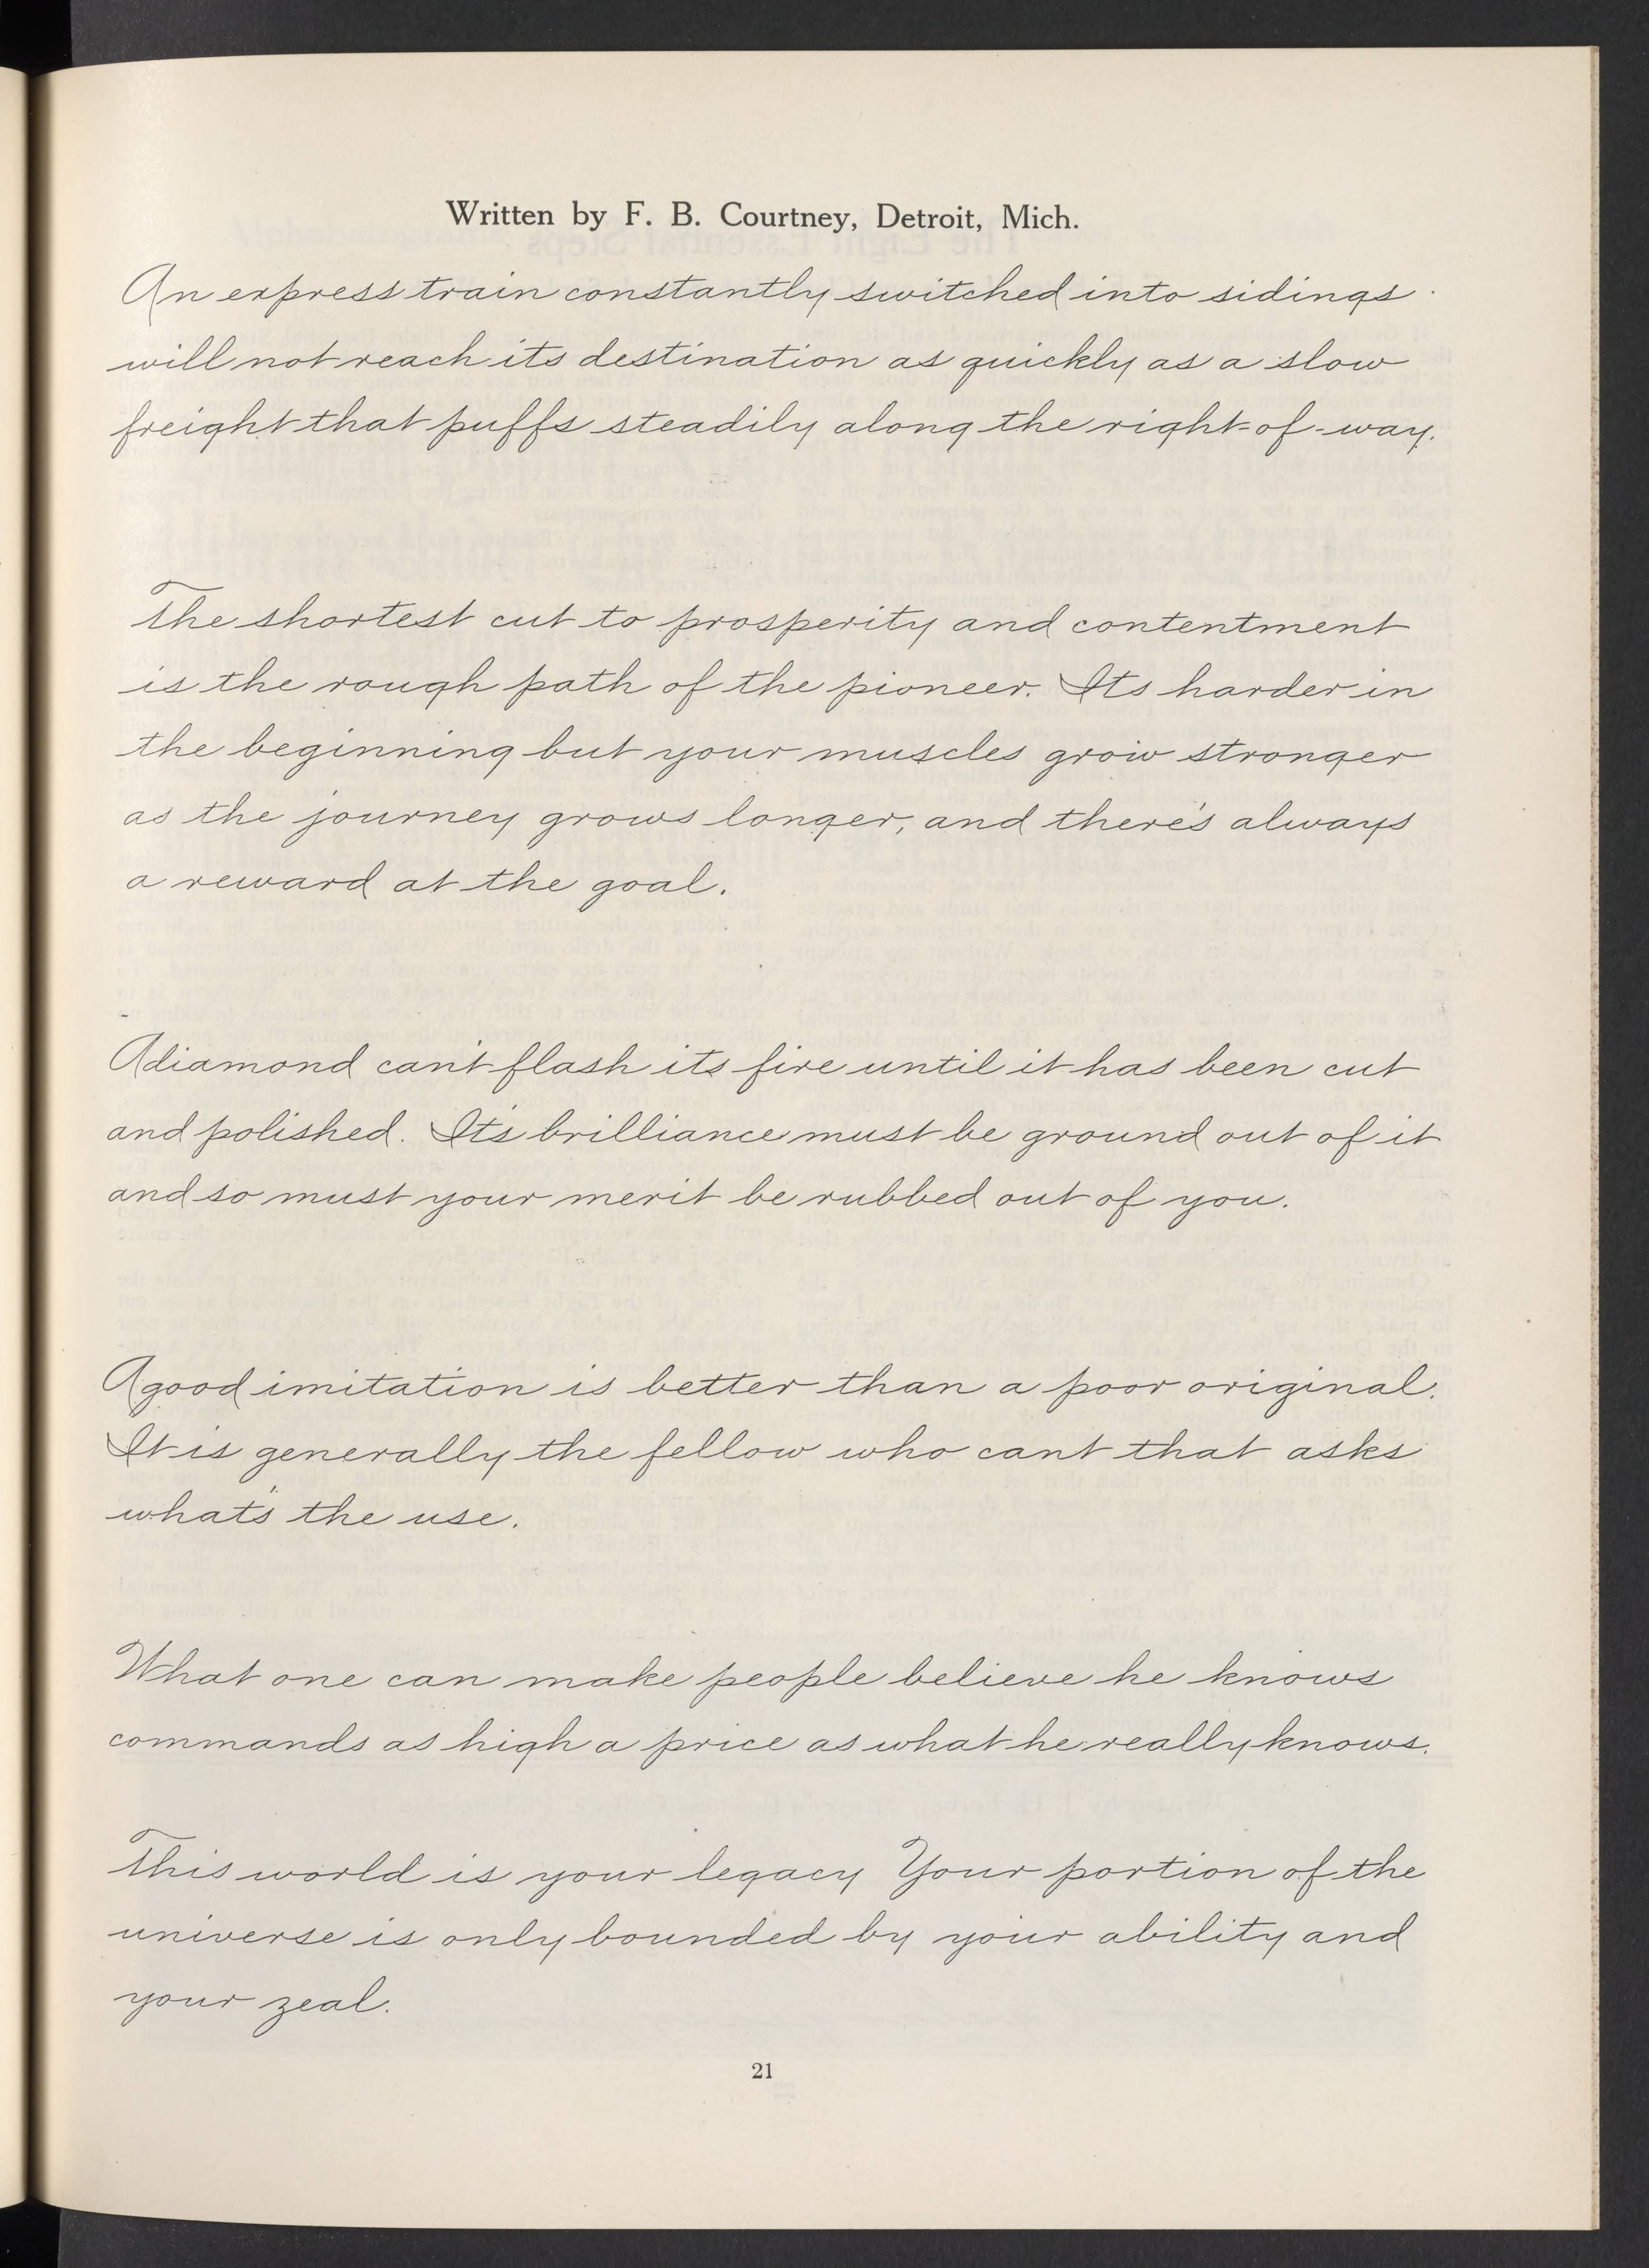 Written by F. B. Courtney, Detroit, Mich.
An express train constantly switched into sidings
will not reach its destination as quickly as a slow
freight that puffs steadily along the right-of-way.
The shortest cut to prosperity and contentment
is the rough path of the pioneer. Its harder in
the beginning but your muscles grow stronger
as the journey grows longer, and there's always
a reward at the goal.
A diamond can't flash its fire until it has been cut
and polished. It's brilliance must be ground out of it
and so must your merit be rubbed out of you.
A good imitation is better than a poor original.
It is generally the fellow who cant that asks
what's the use.
What one can make people believe he knows
commands as high a price as what he really knows.
This world is your legacy Your portion of the
universe is only bounded by your ability and
your zeal.
21